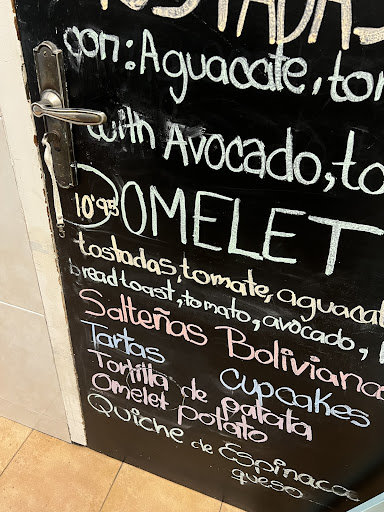 TOSTADAS
con: Aguacate, tom
with Avocado, to
10'95 OMELET
tostadas, tomate, aguacat
bread toast, tomato, avocado,
Salteñas Boliviana
Tartas cupcakes
Tortilla de patata
Omelet potato
Quiche de Espinaca
queso